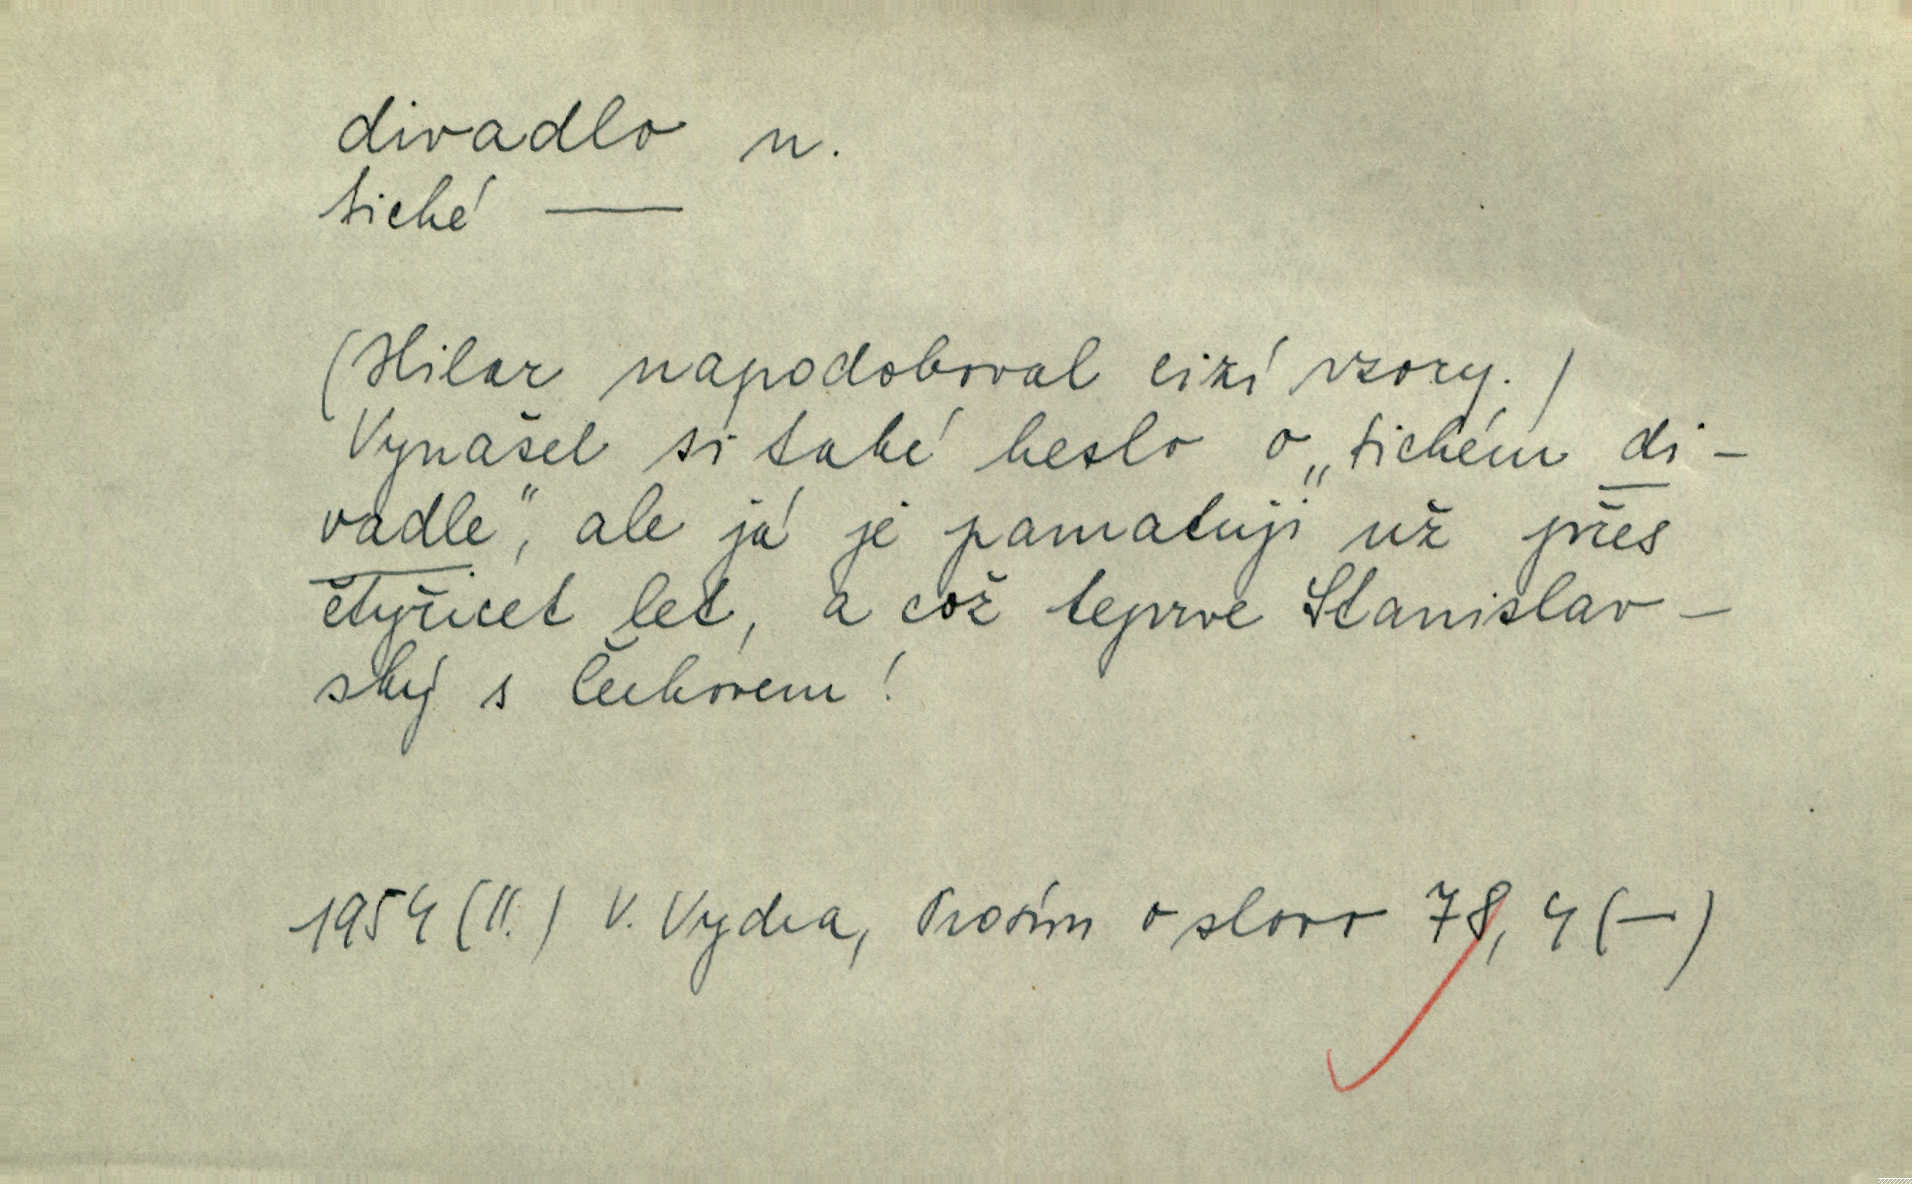 divadlo n.
tiché —
(Hilar napodoboval cizí vzory.)
Vynašel si také heslo o „tichém di-
vadle“, ale já je pamatuji už přes
čtyřicet let, a což teprve Stanislav-
ský s Čechovem!
1954 (II.) V. Vydra, Prosím o slovo 78, 4 (—)